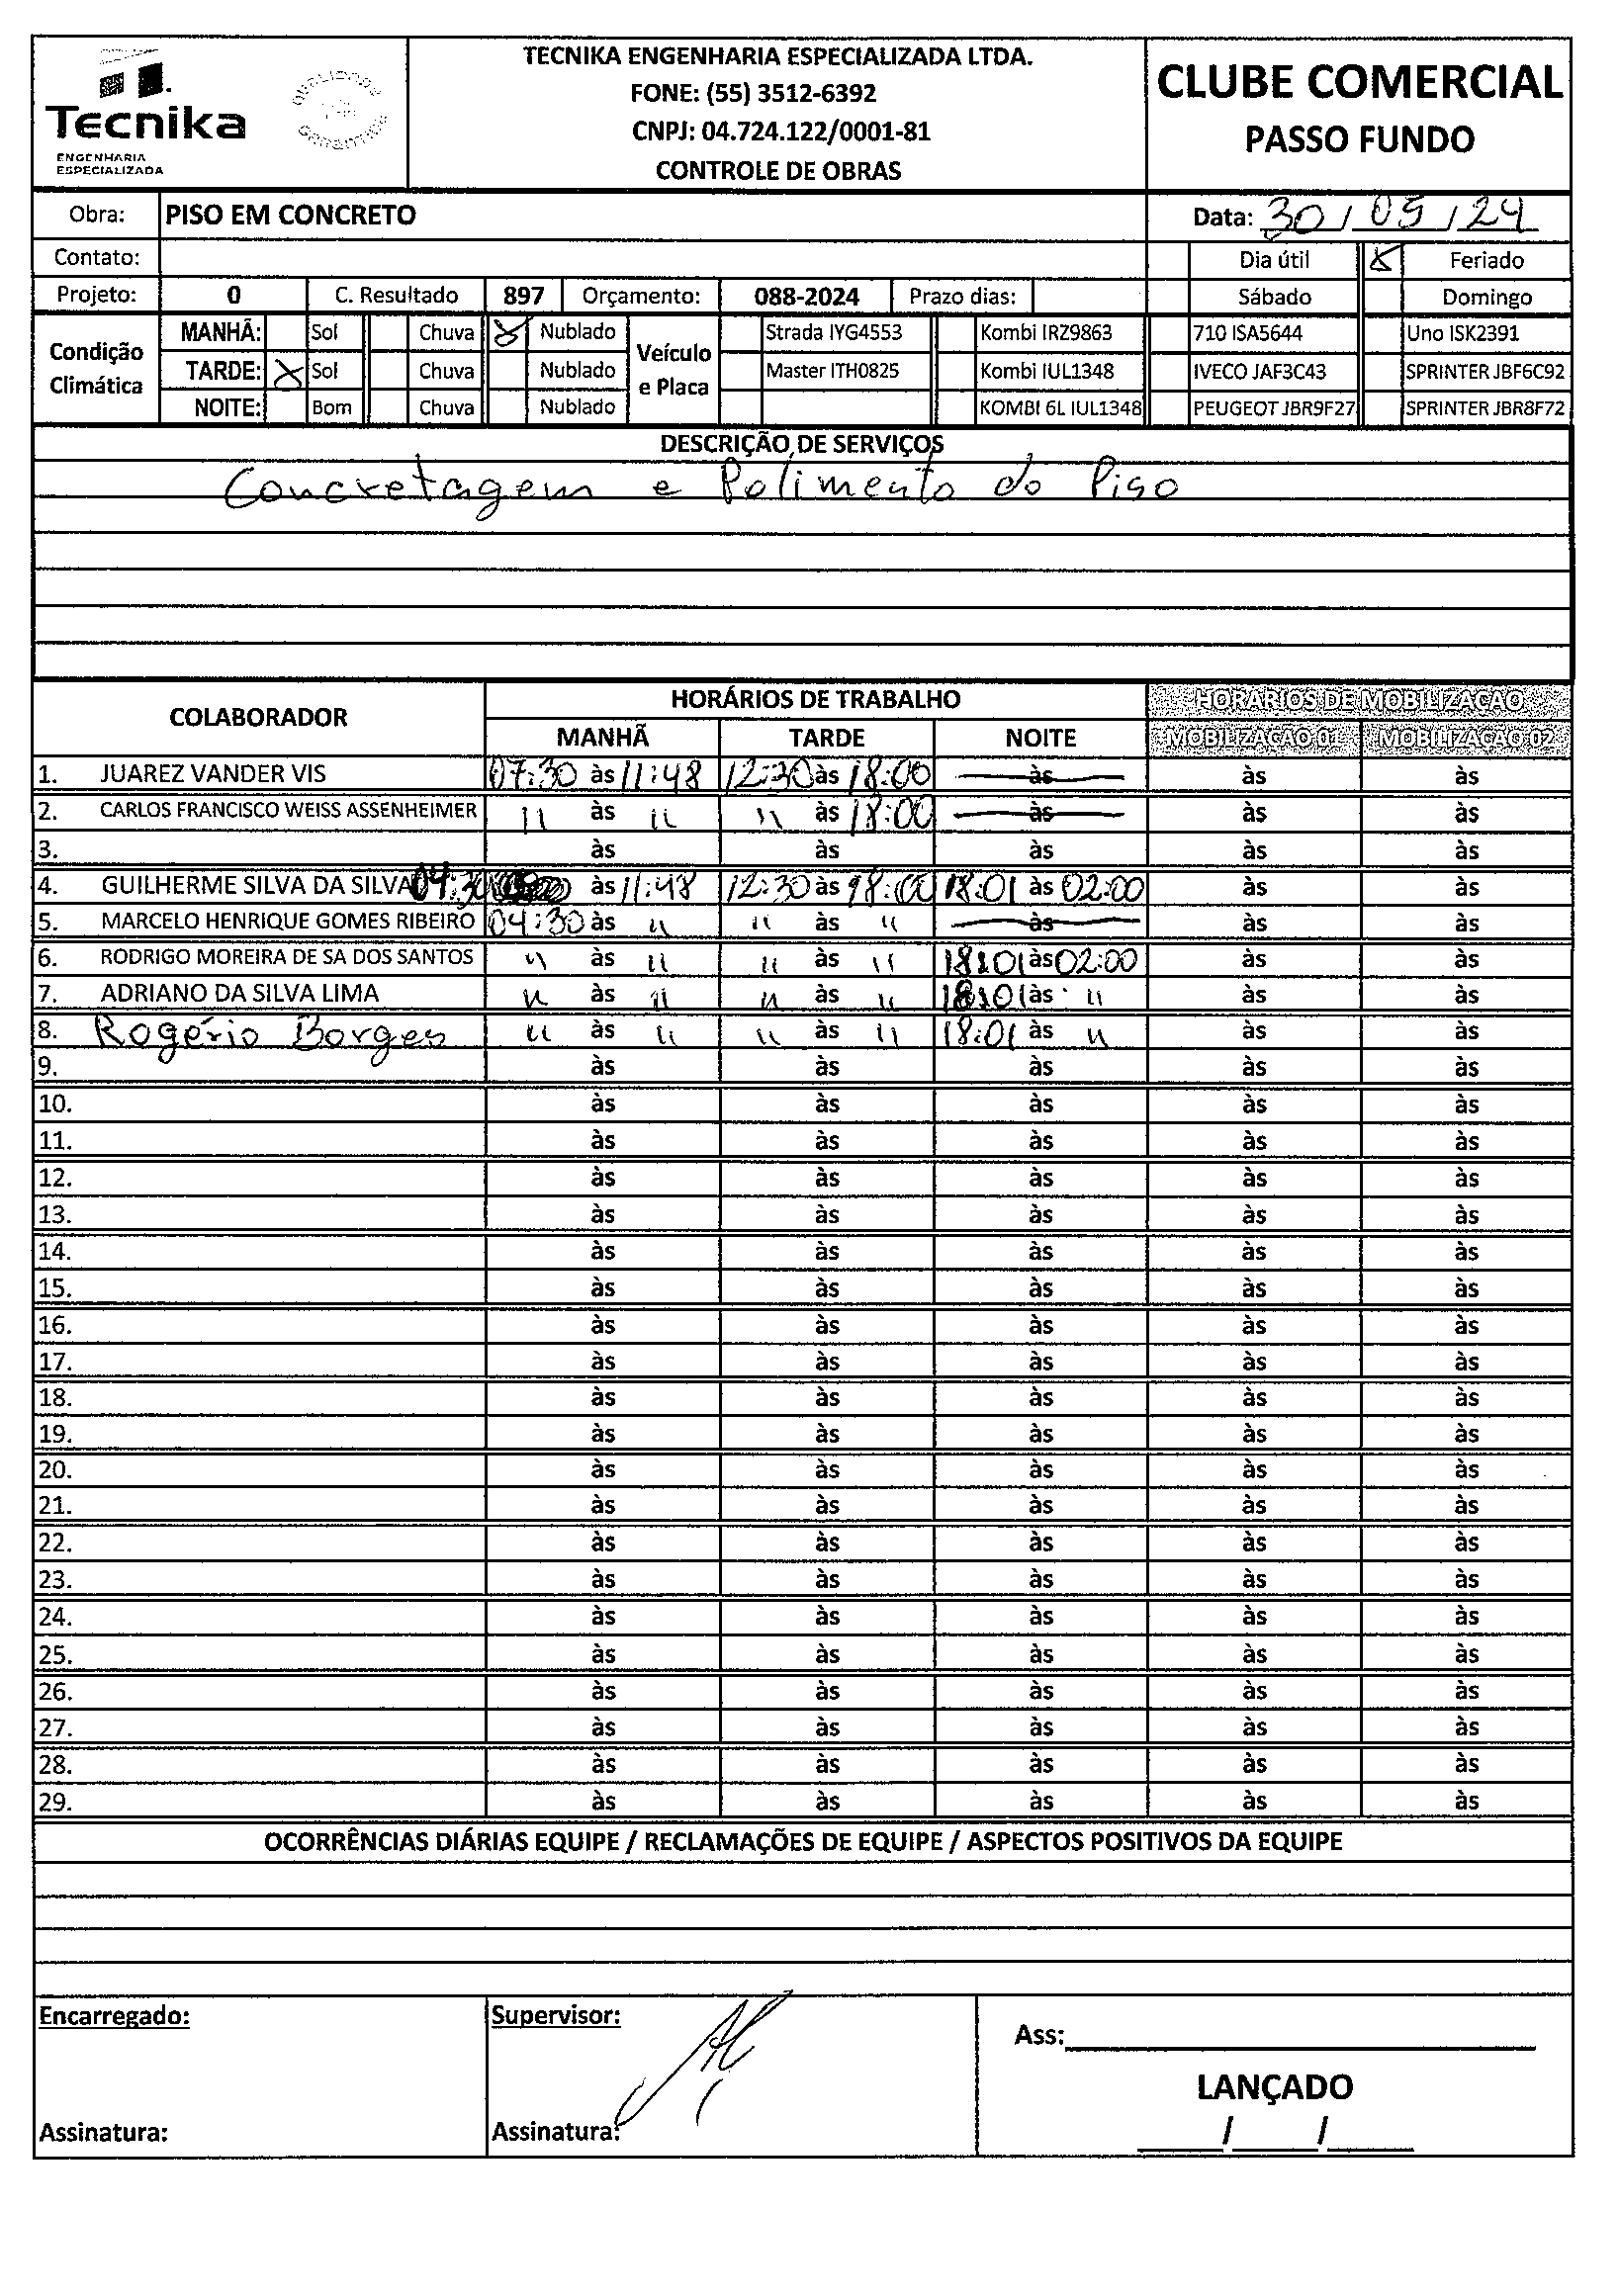 Tecnika
ENGENHARIA
ESPECIALIZADA
TECNIKA ENGENHARIA ESPECIALIZADA LTDA.
FONE: (55) 3512-6392
CNPJ: 04.724.122/0001-81
CONTROLE DE OBRAS
CLUBE COMERCIAL
PASSO FUNDO
Obra: PISO EM CONCRETO Data: 30/05/24
Contato: Dia útil X Feriado
Projeto: 0 C. Resultado 897 Orçamento: 088-2024 Prazo dias: Sábado Domingo
Condição Climática
MANHÃ: Sol Chuva X Nublado
TARDE: X Sol Chuva Nublado
NOITE: Bom Chuva Nublado
Veículo e Placa
Strada IYG4553 Kombi IRZ9863 710 ISA5644 Uno ISK2391
Master ITH0825 Kombi IUL1348 IVECO JAF3C43 SPRINTER JBF6C92
KOMBI 6L IUL1348 PEUGEOT JBR9F27 SPRINTER JBR8F72
DESCRIÇÃO DE SERVIÇOS
Concretagem e Polimento do Piso
COLABORADOR HORÁRIOS DE TRABALHO HORÁRIOS DE MOBILIZAÇÃO
MANHÃ TARDE NOITE MOBILIZAÇÃO 01 MOBILIZAÇÃO 02
1. JUAREZ VANDER VIS 07:30 às 11:48 12:30 às 18:00 às às às
2. CARLOS FRANCISCO WEISS ASSENHEIMER " às " " às 18:00 às às às
3. às às às às às
4. GUILHERME SILVA DA SILVA 04:30 às 11:48 12:30 às 18:00 18:01 às 02:00 às às
5. MARCELO HENRIQUE GOMES RIBEIRO 04:30 às " " às " às às às
6. RODRIGO MOREIRA DE SA DOS SANTOS " às " " às " 18:01 às 02:00 às às
7. ADRIANO DA SILVA LIMA " às " " às " 18:01 às " às às
8. Rogério Borges " às " " às " 18:01 às " às às
9. às às às às às
10. às às às às às
11. às às às às às
12. às às às às às
13. às às às às às
14. às às às às às
15. às às às às às
16. às às às às às
17. às às às às às
18. às às às às às
19. às às às às às
20. às às às às às
21. às às às às às
22. às às às às às
23. às às às às às
24. às às às às às
25. às às às às às
26. às às às às às
27. às às às às às
28. às às às às às
29. às às às às às
OCORRÊNCIAS DIÁRIAS EQUIPE / RECLAMAÇÕES DE EQUIPE / ASPECTOS POSITIVOS DA EQUIPE
Encarregado: Supervisor:
Ass:
LANÇADO
Assinatura: Assinatura: / /